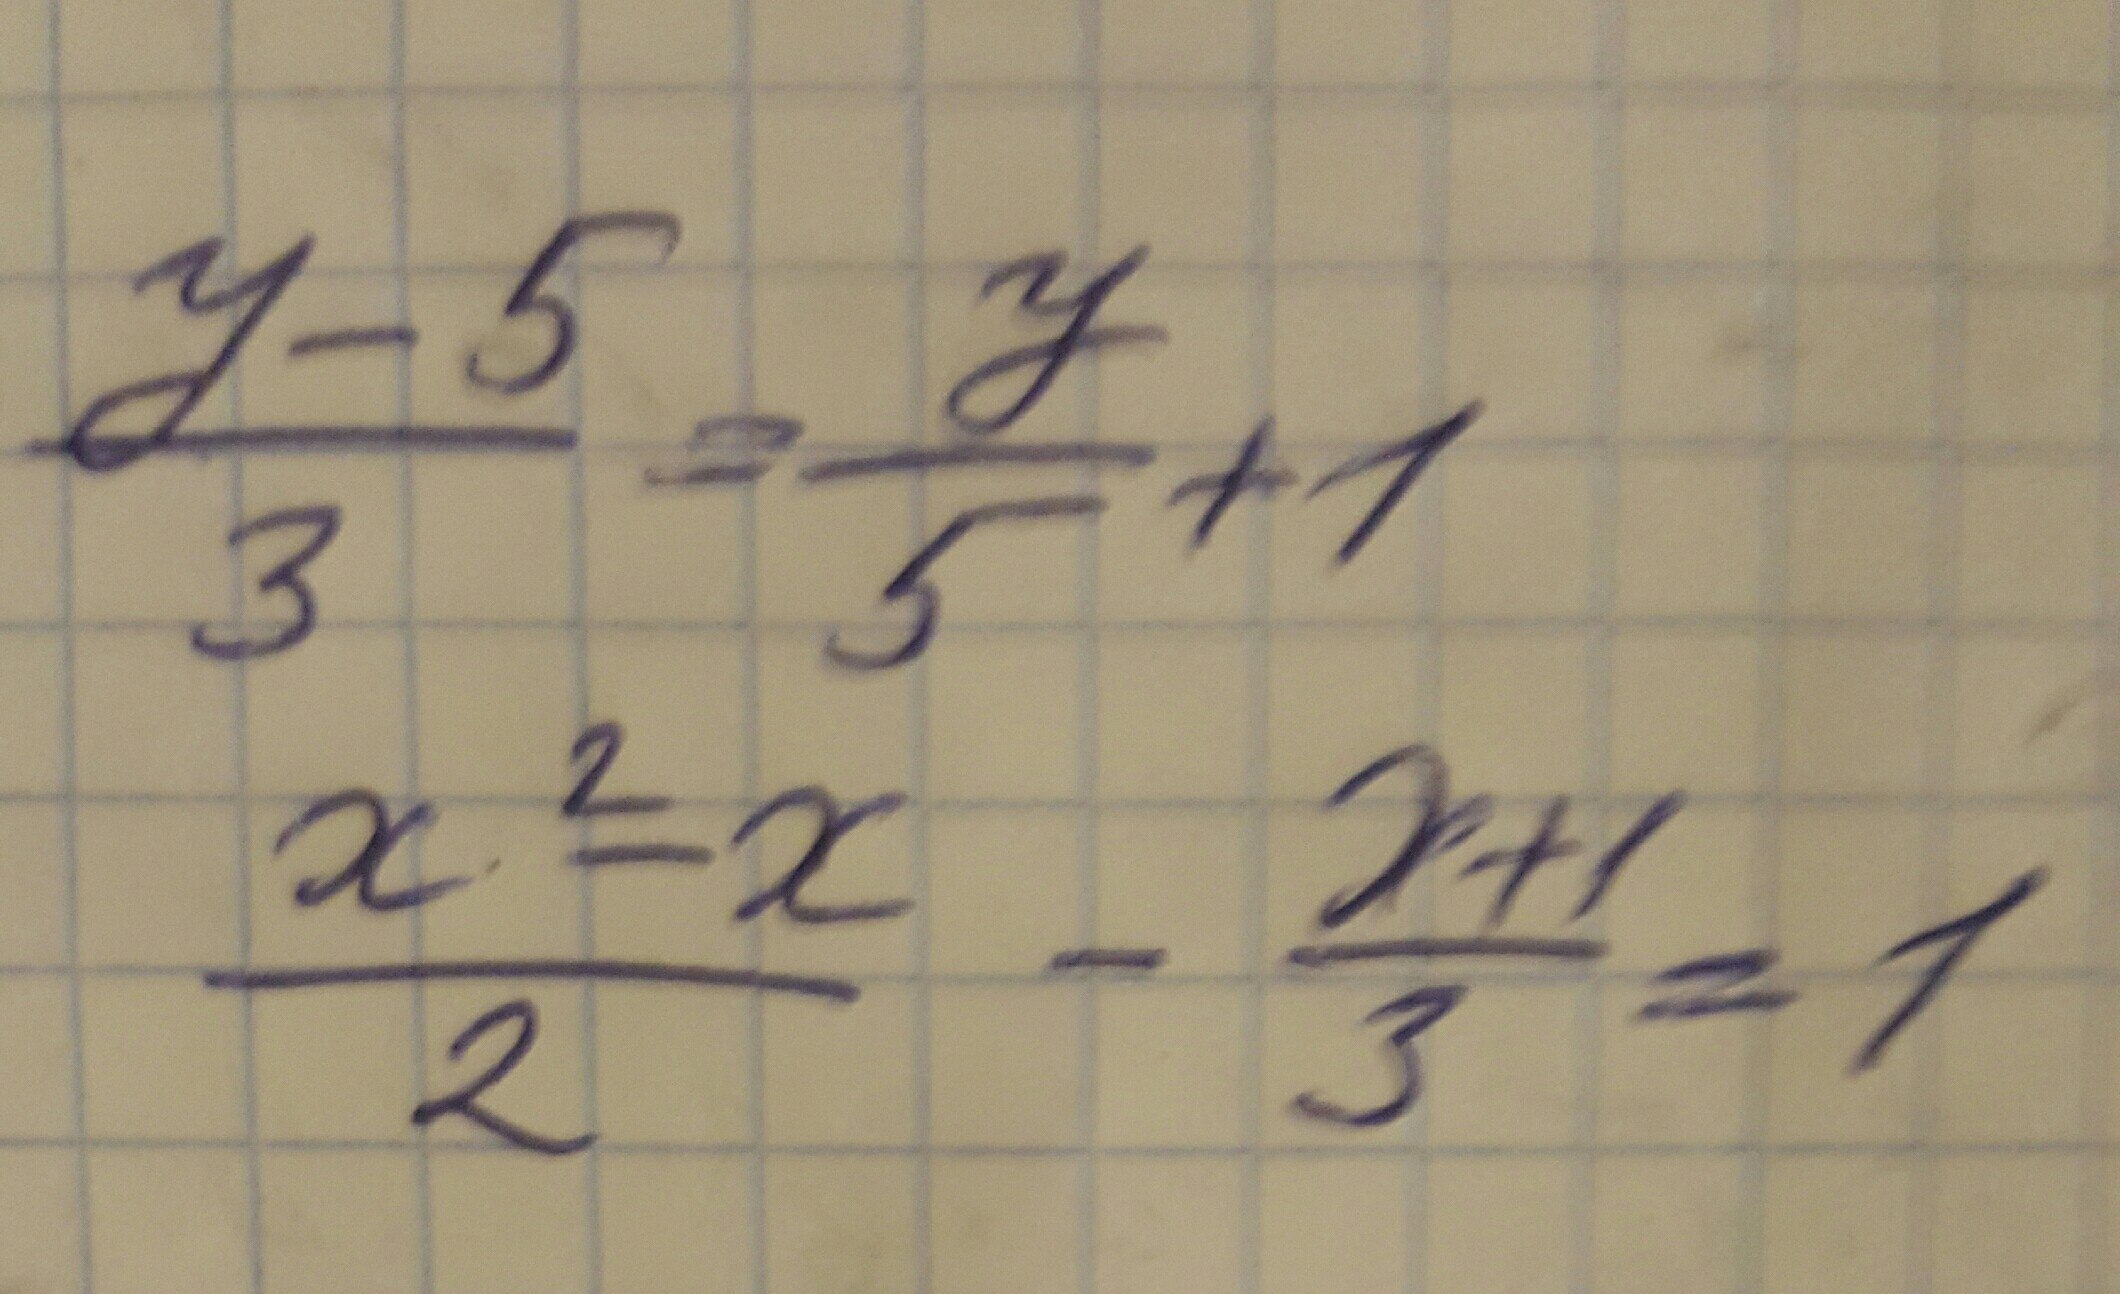 (y-5)/3 = y/5 + 1
(x²-x)/2 - (x+1)/3 = 1